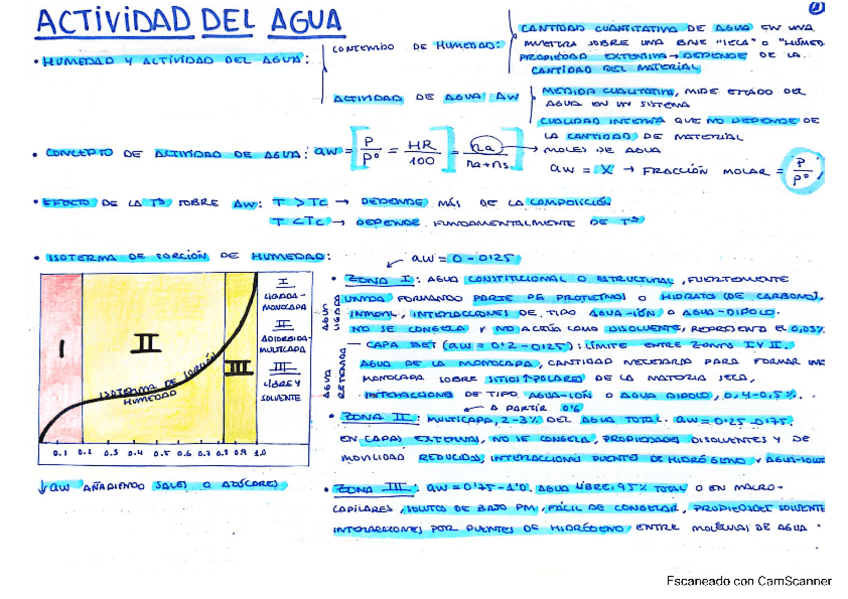 ACTIVIDAD DEL AGUA
• HUMEDAD Y ACTIVIDAD DEL AGUA:
CONTENIDO DE HUMEDAD:
CANTIDAD CUANTITATIVA DE AGUA EN UNA
MUESTRA SOBRE UNA BASE "SECA" O "HÚMED
PROPIEDAD EXTENSIVA → DEPENDE DE LA
CANTIDAD DEL MATERIAL
ACTIVIDAD DE AGUA: AW
MEDIDA CUALITATIVA, MIDE ESTADO DEL
AGUA EN UN SISTEMA
CUALIDAD INTENSIVA QUE NO DEPENDE DE
LA CANTIDAD DE MATERIAL
• CONCEPTO DE ACTIVIDAD DE AGUA: aw = [P/P° = HR/100 = na/na+ns]
→ MOLES DE AGUA
aw = X → FRACCIÓN MOLAR = P/P°
• EFECTO DE LA Tª SOBRE AW: T > Tc → DEPENDE MÁS DE LA COMPOSICIÓN
T < Tc → DEPENDE FUNDAMENTALMENTE DE Tª
• ISOTERMA DE SORCIÓN DE HUMEDAD:
aw = 0 - 0'25
• ZONA I: AGUA CONSTITUCIONAL O ESTRUCTURAL, FUERTEMENTE
UNIDA FORMANDO PARTE DE PROTEÍNAS O HIDRATO (DE CARBONO),
INMÓVIL, INTERACCIONES DE TIPO AGUA-IÓN O AGUA-DIPOLO.
NO SE CONGELA Y NO ACTÚA COMO DISOLVENTE, REPRESENTA EL 0,03%
— CAPA BET (aw = 0'2 - 0'25): LÍMITE ENTRE ZONAS I Y II.
AGUA DE LA MONOCAPA, CANTIDAD NECESARIA PARA FORMAR UNA
MONOCAPA SOBRE SITIOS ↑ POLARES DE LA MATERIA SECA,
INTERACCIONES DE TIPO AGUA-IÓN O AGUA DIPOLO, 0,4-0,5%.
A PARTIR 0'6
• ZONA II: MULTICAPA, 2-3% DEL AGUA TOTAL. aw = 0'25-0'75.
EN CAPAS EXTERNAS, NO SE CONGELA, PROPIEDADES DISOLVENTES Y DE
MOVILIDAD REDUCIDA, INTERACCIONES PUENTE DE HIDRÓGENO Y AGUA-IONES
• ZONA III: aw = 0'75-1'0. AGUA LIBRE, 95% TOTAL O EN MACRO-
CAPILARES, SOLUTOS DE BAJO PM, FÁCIL DE CONGELAR, PROPIEDADES SOLVENTE
INTERACCIONES POR PUENTES DE HIDRÓGENO ENTRE MOLÉCULAS DE AGUA.
AGUA LIGADA
AGUA RETENIDA
I
II
III
ISOTERMA DE SORCIÓN
HUMEDAD
I
LIGADA-
MONOCAPA
II
ADSORBIDA-
MULTICAPA
III
LIBRE Y
SOLVENTE
0.1 0.2 0.3 0.4 0.5 0.6 0.7 0.8 0.9 1.0
↓aw AÑADIENDO SALES O AZÚCARES
Escaneado con CamScanner